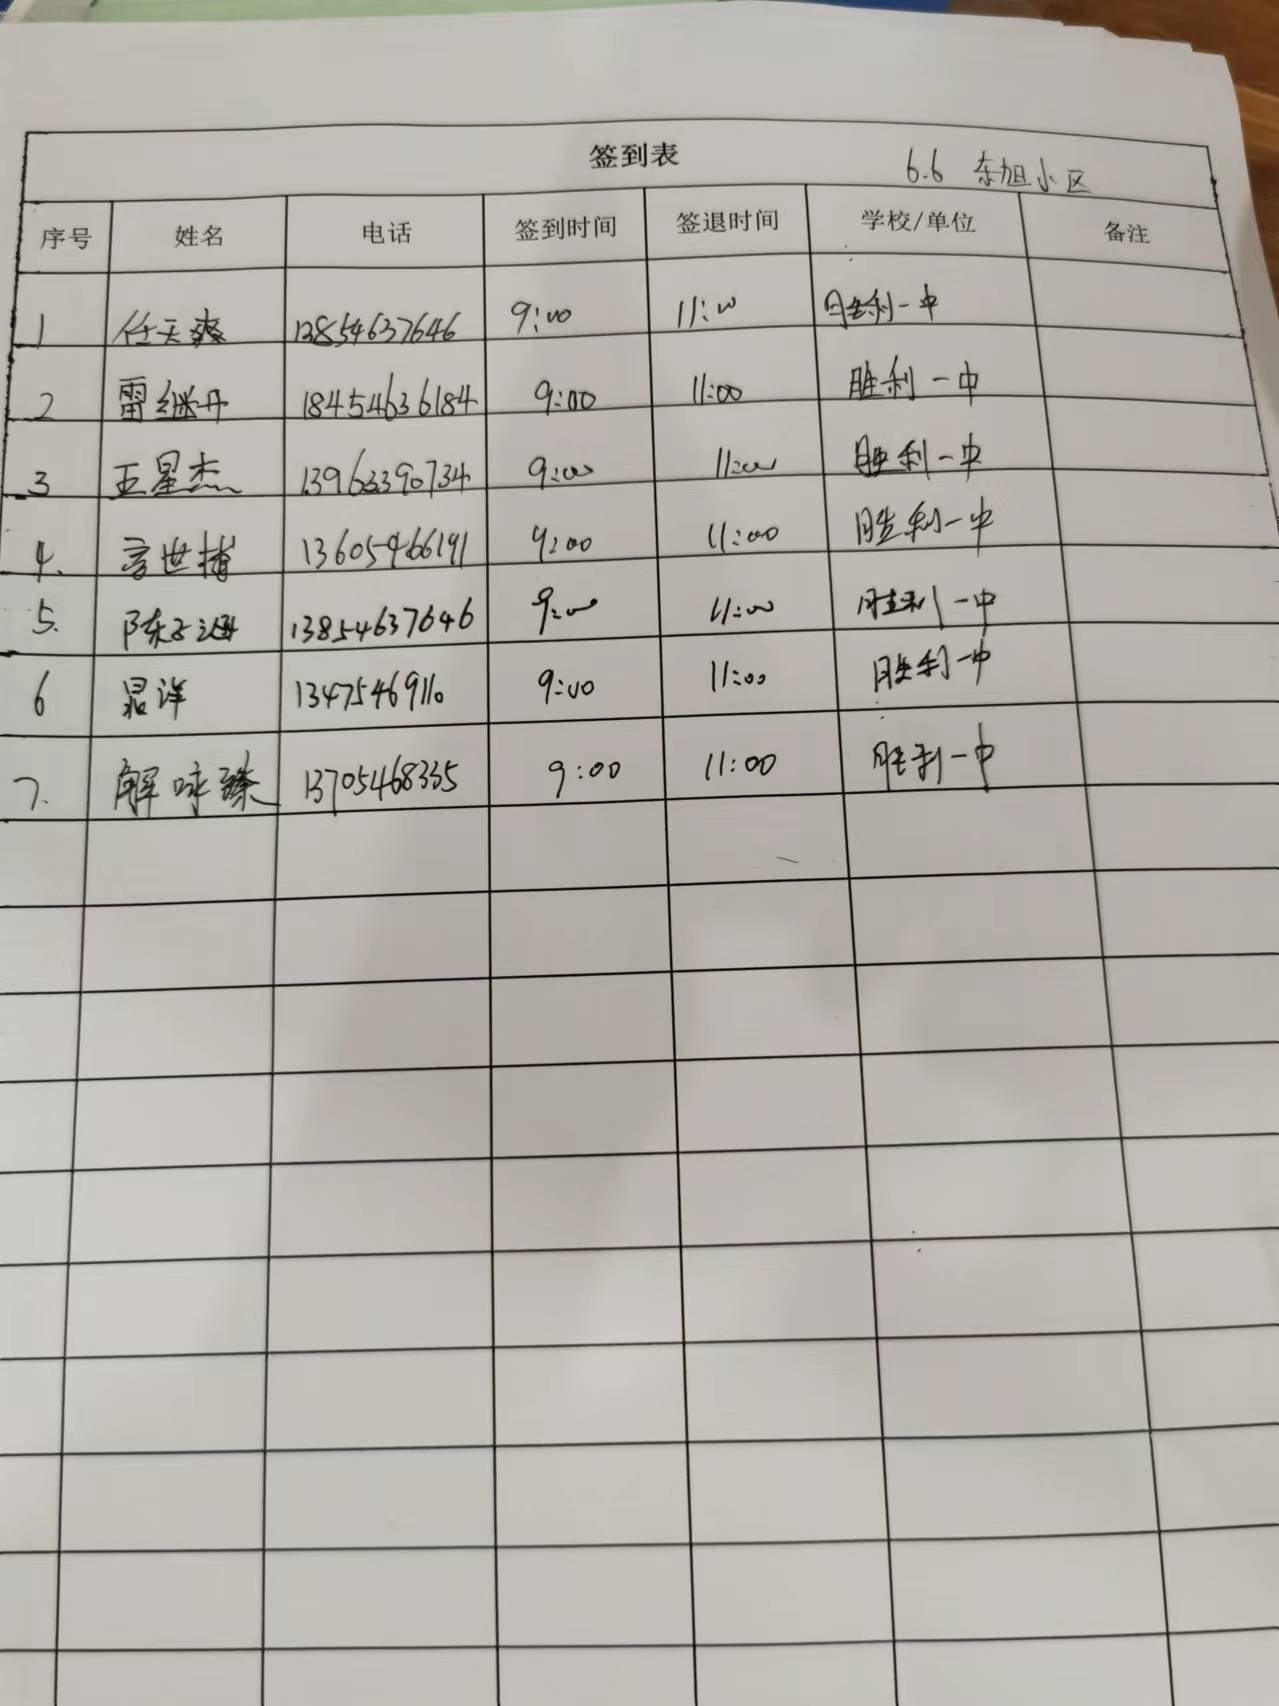 签到表 6.6 东旭小区
序号 姓名 电话 签到时间 签退时间 学校/单位 备注
1 任天爽 13854637646 9:00 11:00 胜利一中
2 雷继丹 18454636184 9:00 11:00 胜利一中
3 王星杰 13963390734 9:00 11:00 胜利一中
4. 世 13605466191 9:00 11:00 胜利一中
5. 陈子涵 13854637646 9:00 11:00 胜利一中
6 洋 13475469110 9:00 11:00 胜利一中
7. 解咏臻 13705468335 9:00 11:00 胜利一中